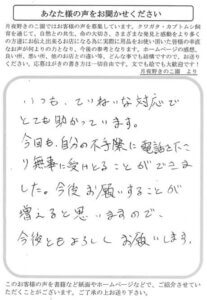 あなた様の声をお聞かせください
月夜野きのこ園ではお客様の声を募集しています。クワガタ・カブトムシ飼
育を通して、自然との共生、命の大切さ、さまざまな発見と感動をより多く
の方達にお伝え出来るお店になる為に実際に用品をお使い頂いた皆様の率直
なお声が何よりの力となり、今後の参考となります。ホームページの感想、
良い所、悪い所、他のお店との違いなど、どんな事でも結構ですので、お送り
ください。応募はがきの書き方は一切自由です。文でも絵でも大歓迎です!
月夜野きのこ園 より
いつも、ていねいな対応で
とても助かっています。
今回も、自分の不手際に電話をいただ
り無事に受けとることができま
した。今後お願いすることが
増えると思いますので、
今後ともよろしくお願いします。
このお客様の声を書籍など紙面やホームページなどで、ご紹介させてい
ただくことがございます。ご了承の上お送り下さい。